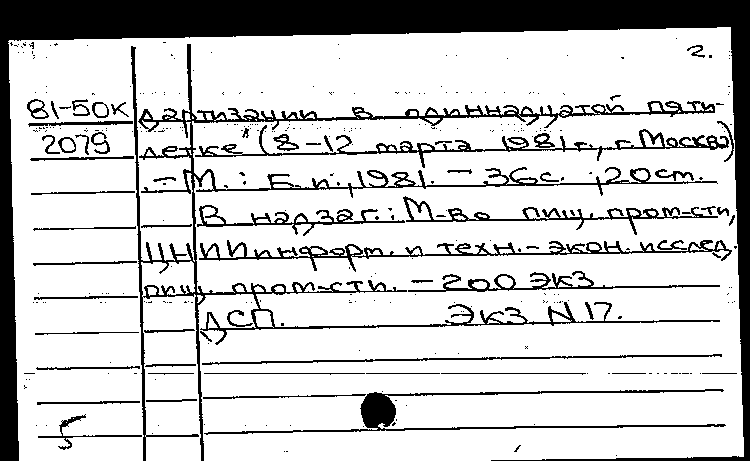 2.
81-50к дартизации в одиннадцатой пяти-
2079 летке" (8-12 марта 1981 г., г. Москва)
.-М.: Б.и., 1981. - 36с. ; 20 см.
В надзаг.: М-во пищ. пром-сти,
ЦНИИинформ. и техн.-экон. исслед.
пищ. пром-сти. - 200 экз.
ДСП. Экз N 17.
5